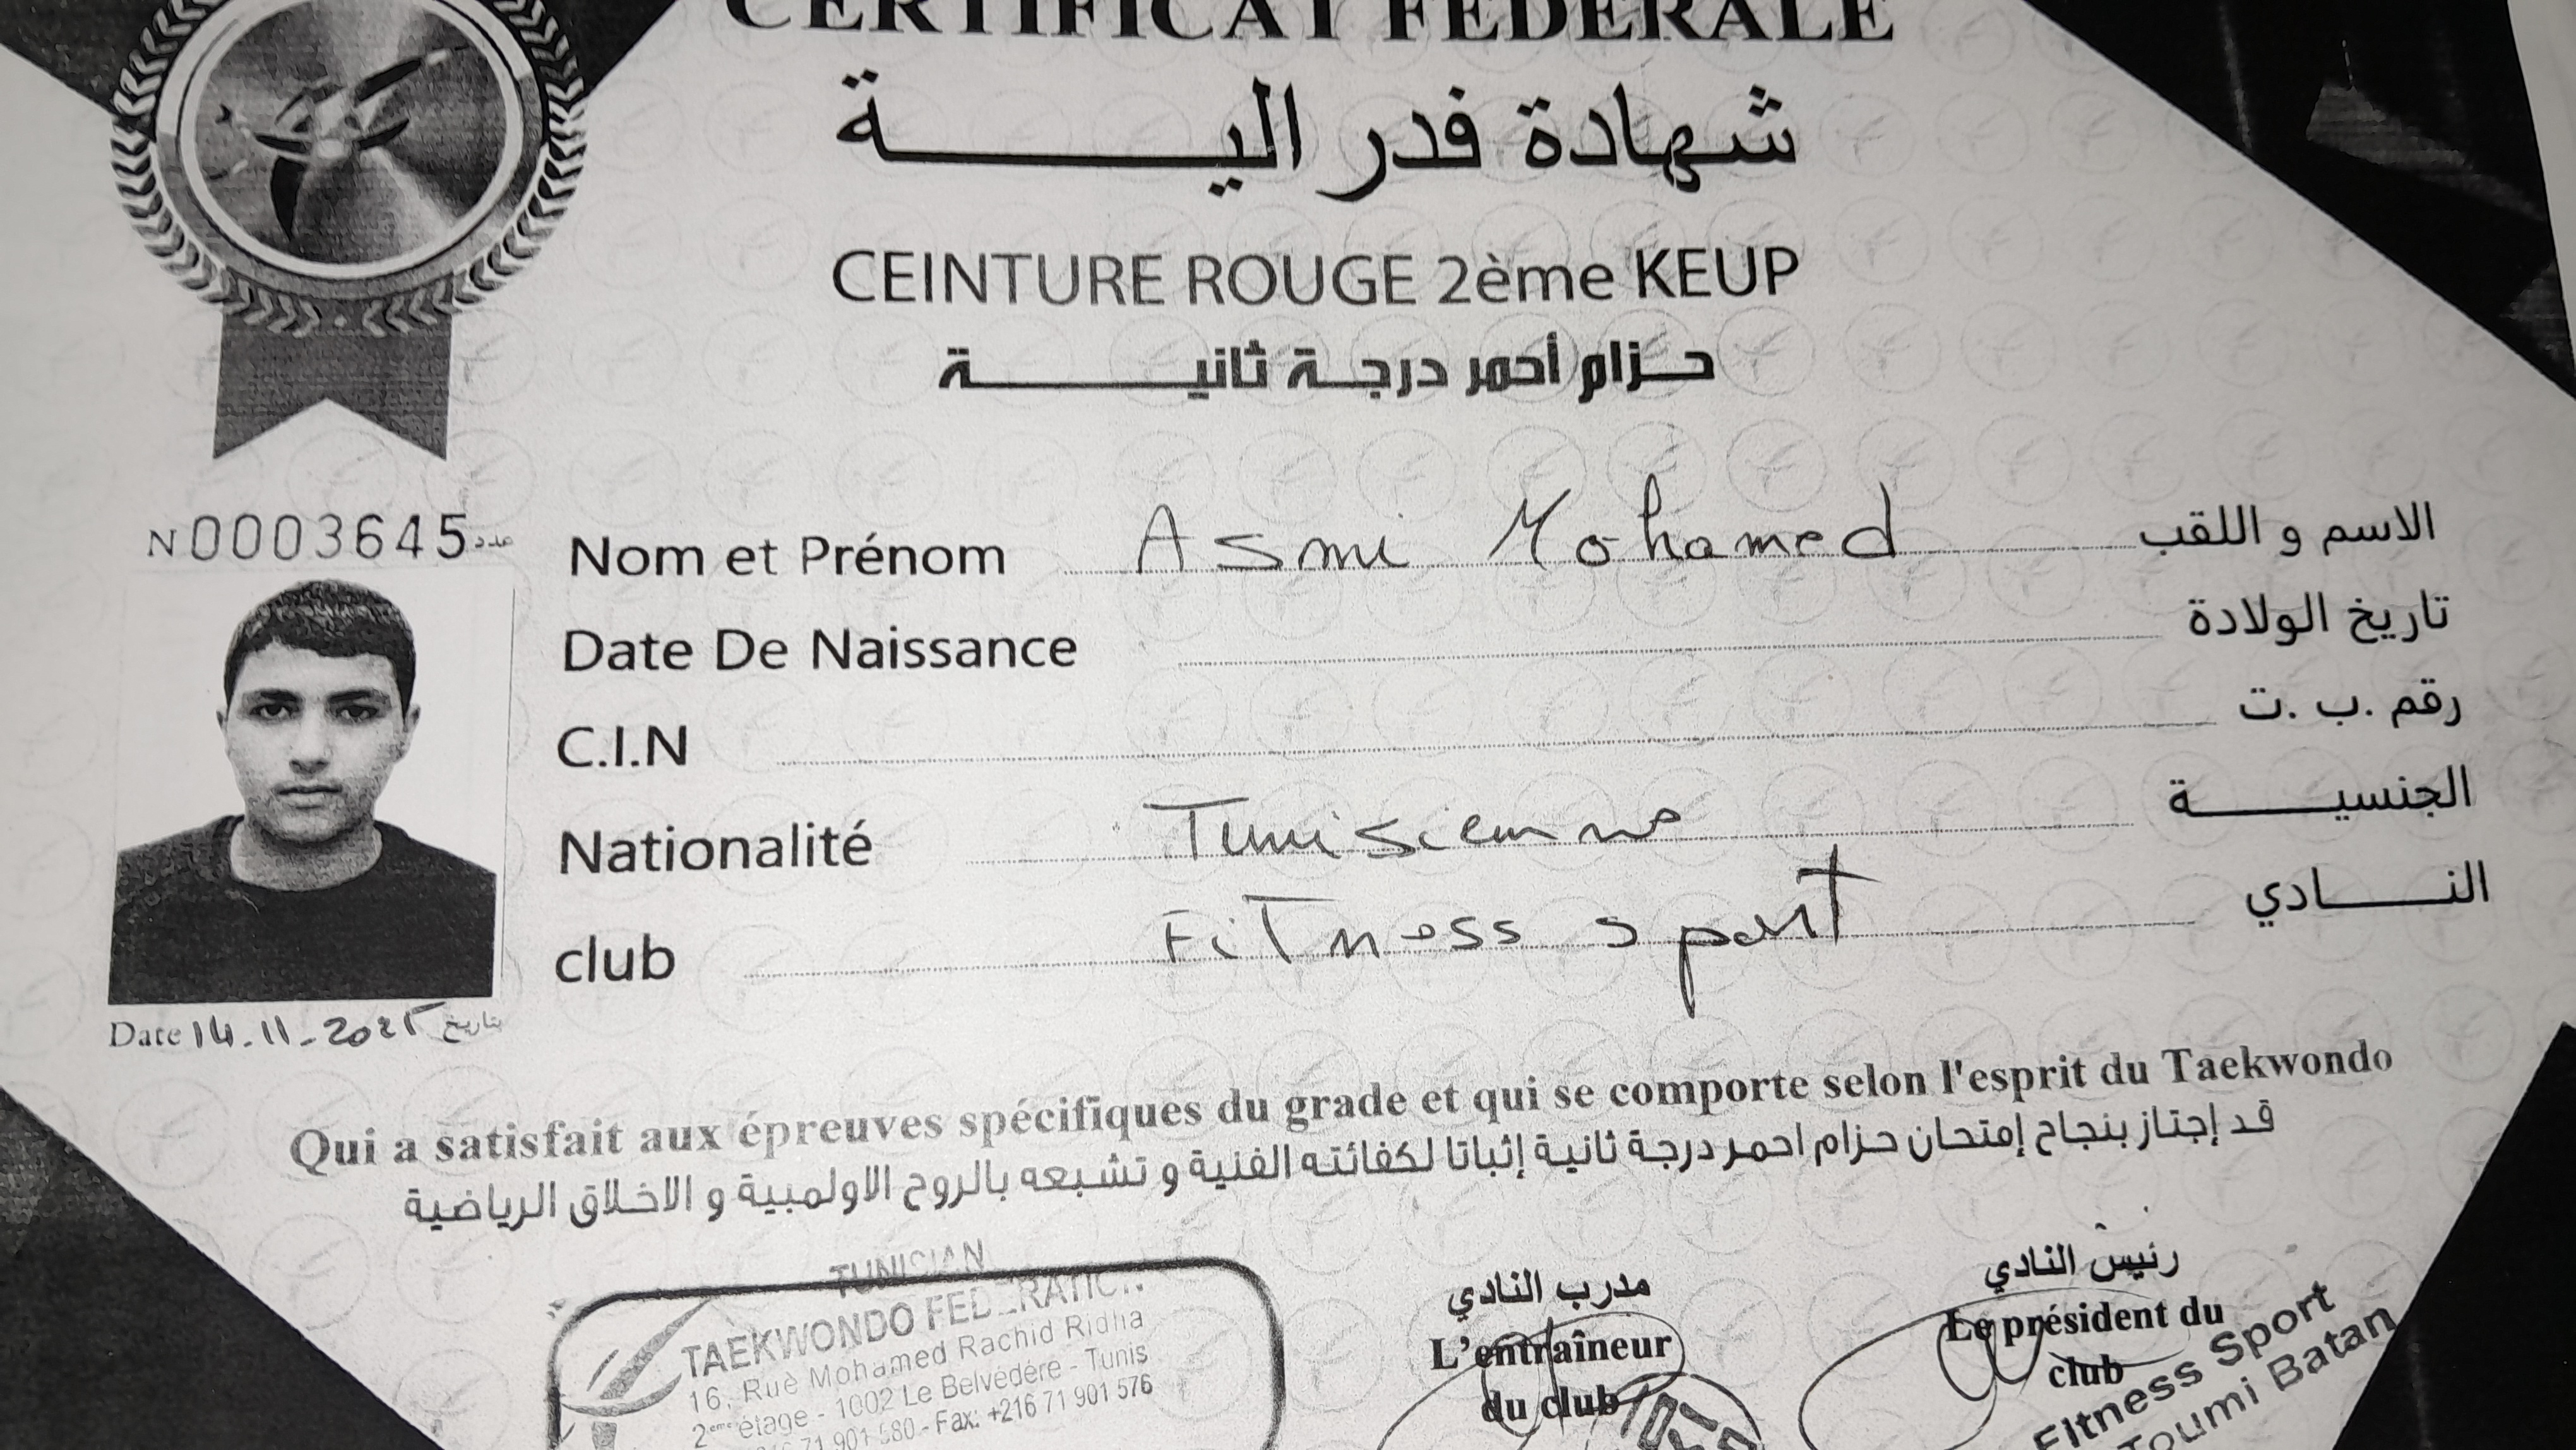 CERTIFICAT FEDERALE
شهادة فدرالية
CEINTURE ROUGE 2ème KEUP
حزام أحمر درجة ثانية
N0003645 عدد
Nom et Prénom Asmi Mohamed الاسم و اللقب
Date De Naissance تاريخ الولادة
C.I.N رقم .ب .ت
Nationalité Tunisienne الجنسية
club FiTness sport النادي
Date 14.11-2025 بتاريخ
Qui a satisfait aux épreuves spécifiques du grade et qui se comporte selon l'esprit du Taekwondo
قد إجتاز بنجاح إمتحان حزام احمر درجة ثانية إثباتا لكفائته الفنية و تشبعه بالروح الاولمبية و الاخلاق الرياضية
TUNISIAN
TAEKWONDO FEDERATION
16, Rue Mohamed Rachid Ridha
2ème étage - 1002 Le Belvédère - Tunis
71 901 580 - Fax: +216 71 901 576
مدرب النادي
L'entraîneur
du club
رئيس النادي
Le président du
club
Fitness Sport
Toumi Batan